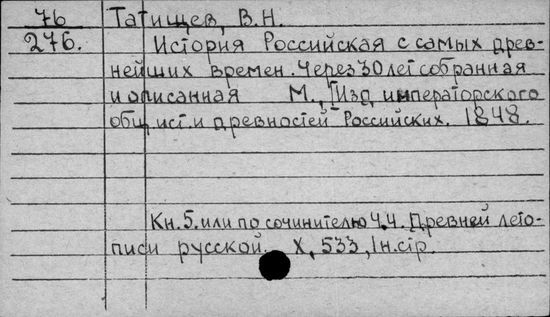 76 Татищев, В.Н.
276. История Российская с самых древ-
нейших времен. Через 30 лет собранная
и описанная М., Изд императорского
общ. ист. и древностей Российских. 1848.
Кн. 5. или по сочинителю Ч.4. Древней лето-
писи русской. X, 533, 1 н. стр.